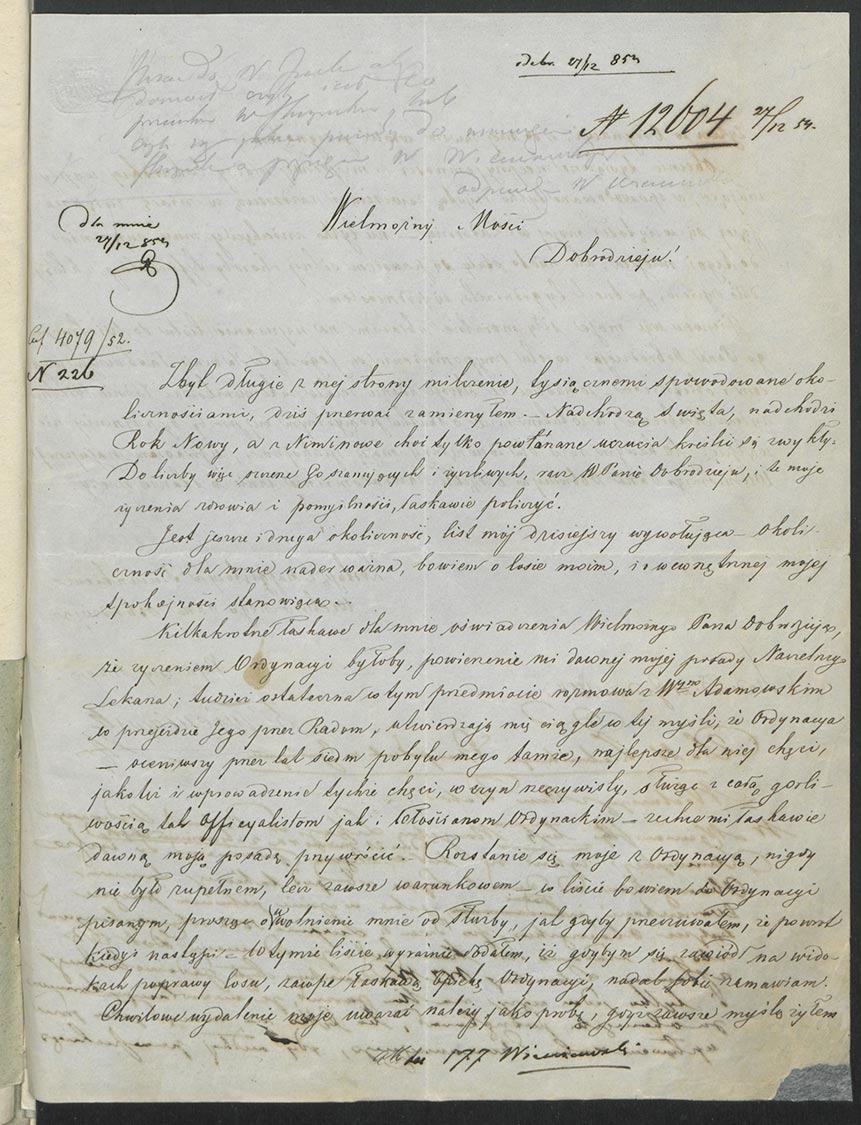 odebr. 27/12 853
N 12604 27/12 53.
dla mnie
27/12 853
Wielmożny Mości
Dobrodzieju!
4079/52.
N 226
Zbyt długie z mej strony milczenie, tysiącznemi spowodowane oko-
licznościami, dziś przerwać zamierzyłem. – Nadchodzą Święta, nadchodzi
Rok Nowy, a z Nim nowe choć tylko powtarzane uczucia kreślić się zwykły.
Do liczby więc szczerze Go szanujących i życzliwych, racz WPanie Dobrodzieju, i te moje
życzenia zdrowia i pomyślności, łaskawie policzyć.
Jest jeszcze i druga okoliczność, list mój dzisiejszy wywołująca – okoli-
czność dla mnie nader ważna, bowiem o losie moim, i o wewnętrznej mojej
spokojności stanowiąca. –
Kilkakrotne łaskawe dla mnie oświadczenia Wielmożnego Pana Dobrodzieja,
że życzeniem Ordynacyi byłoby, powierzenie mi dawnej mojej posady Naczelnego
Lekarza; tudzież ostateczna w tym przedmiocie rozmowa z Wmym Adamowskim
w przejeździe Jego przez Radom, utwierdzają mię ciągle w tej myśli, że Ordynacya
– oceniwszy przez lat siedm pobytu mego tamże, najlepsze dla niej chęci,
jakoteż i wprowadzenie tychże chęci, w czyn rzeczywisty, służąc z całą gorli-
wością tak Officyalistom jak i Włościanom Ordynackim – zechce mi łaskawie
dawną moją posadę przywrócić. – Rozstanie się moje z Ordynacyą, nigdy
nie było zupełnem, lecz zawsze warunkowem – w liście bowiem do Ordynacyi
pisanym, prosząc o uwolnienie mnie od służby, jak gdyby przeczuwałem, że powrót
kiedyś nastąpi – w tymże liście wyraźnie dodałem, iż gdybym się zawiódł na wido-
kach poprawy losu, zawsze łaskawą opiekę Ordynacyi, nadal sobie zamawiam.
Chwilowe wydalenie moje uważać należy jako próbę, gdyż zawsze myślą żyłem
177